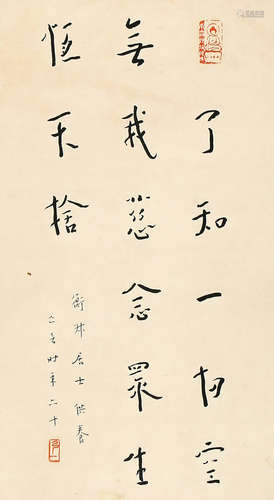 了知一切空
無我慈念眾生
恆不捨
居士供養
時年六十